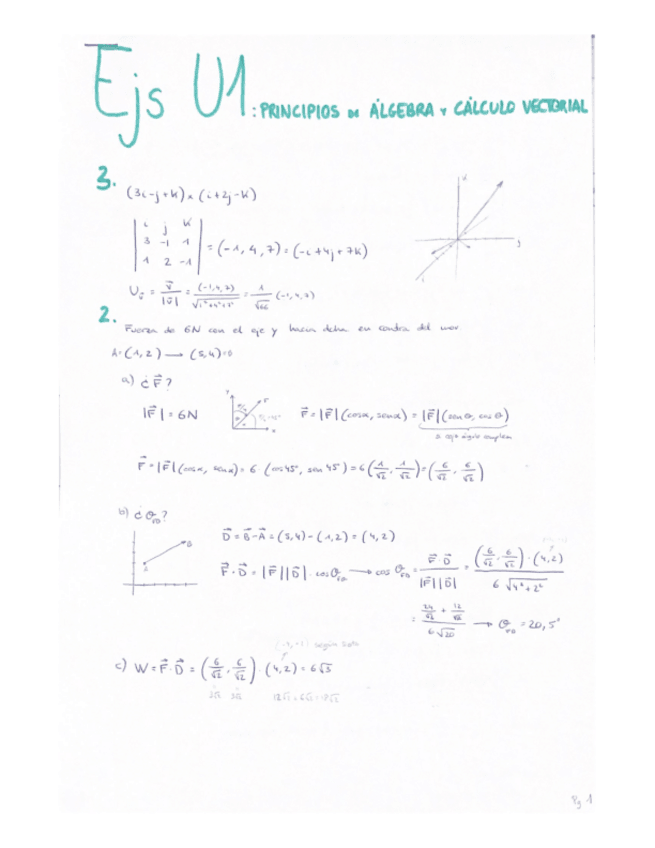 Ejs U1: PRINCIPIOS DE ÁLGEBRA Y CÁLCULO VECTORIAL
3.
(3i-j+k) x (i+2j-k)
| i j k |
| 3 -1 1 | = (-1, 4, 7) = (-i+4j+7k)
| 1 2 -1 |
U_v = v⃗/|v⃗| = (-1,4,7)/√(1²+4²+7²) = 1/√66 (-1,4,7)
2.
Fuerza de 6N con el eje y hacia dcha en contra del mov
A=(1,2) → (5,4)=B
a) ¿F⃗?
|F⃗| = 6N
F⃗ = |F⃗| (cosα, senα) = |F⃗| (senθ, cosθ)
F⃗ = |F⃗| (cosα, senα) = 6 (cos45°, sen 45°) = 6 (1/√2, 1/√2) = (6/√2, 6/√2)
b) ¿θ_FD?
D⃗ = B⃗-A⃗ = (5,4) - (1,2) = (4,2)
F⃗·D⃗ = |F⃗||D⃗|·cosθ_FD → cosθ_FD = F⃗·D⃗/|F⃗||D⃗| = (6/√2, 6/√2)·(4,2) / 6√(4²+2²)
= (24/√2 + 12/√2) / 6√20 → θ_FD = 20,5°
c) W = F⃗·D⃗ = (6/√2, 6/√2)·(4,2) = 6√3
Pg 1